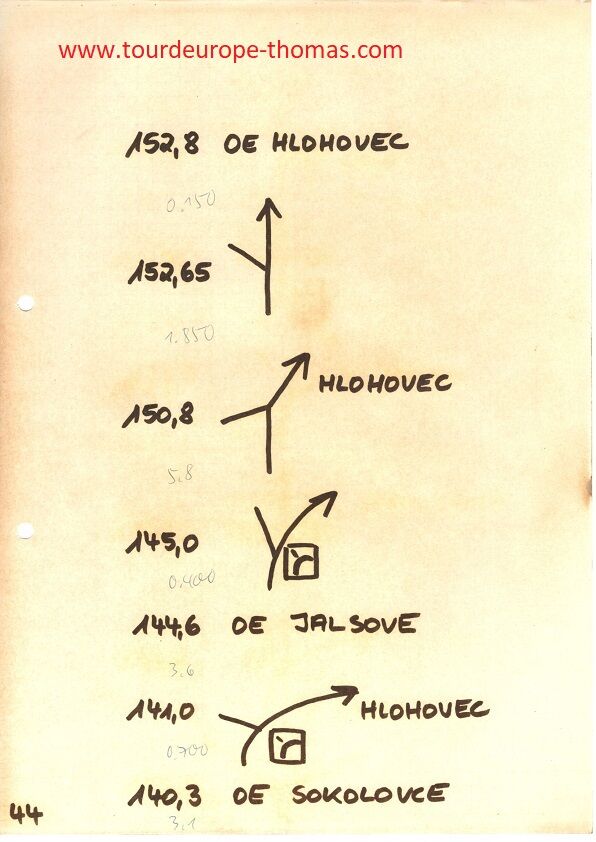 www.tourdeurope-thomas.com
152,8 OE HLOHOVEC
0.150
152,65
1.850
HLOHOVEC
150,8
5.8
145,0
0.400
144,6 OE JALSOVE
3.6
141,0 HLOHOVEC
0.700
140,3 OE SOKOLOVCE
44
3,1